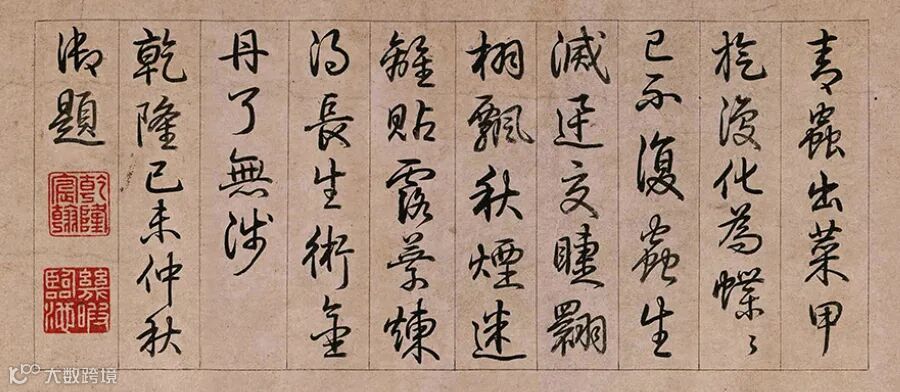 青蟲出菜甲
旋復化為蝶〻
已不復蟲生
滅遞交睫翾
栩飄秋煙迷
離貼露葉煉
得長生術金
丹了無涉
乾隆己未仲秋
御題
乾隆
宸翰
幾暇
臨池
大数跨境